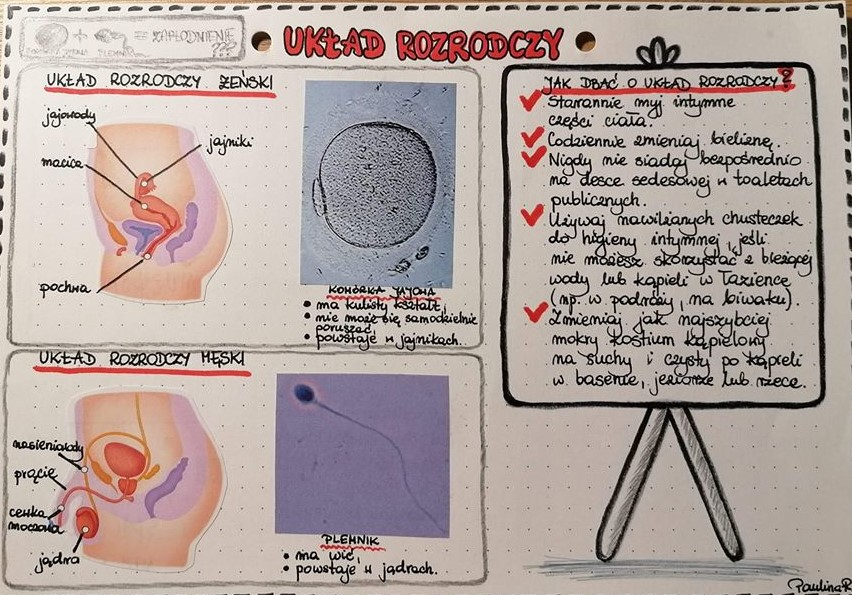 + = ZAPŁODNIENIE
???
KOMÓRKA JAJOWA PLEMNIK
UKŁAD ROZRODCZY
UKŁAD ROZRODCZY ŻEŃSKI
jajowody
jajniki
macica
pochwa
KOMÓRKA JAJOWA
• ma kulisty kształt,
• nie może się samodzielnie
poruszać,
• powstaje w jajnikach.
UKŁAD ROZRODCZY MĘSKI
nasieniowody
prącie
cewka
moczowa
jądra
PLEMNIK
• ma wić,
• powstaje w jądrach.
JAK DBAĆ O UKŁAD ROZRODCZY?
Starannie myj intymne
części ciała.
Codziennie zmieniaj bieliznę.
Nigdy nie siadaj bezpośrednio
na desce sedesowej w toaletach
publicznych.
Używaj nawilżanych chusteczek
do higieny intymnej, jeśli
nie możesz skorzystać z bieżącej
wody lub kąpieli w łazience
(np. w podróży, na biwaku).
Zmieniaj jak najszybciej
mokry kostium kąpielowy
na suchy i czysty po kąpieli
w basenie, jeziorze lub rzece.
Paulina R